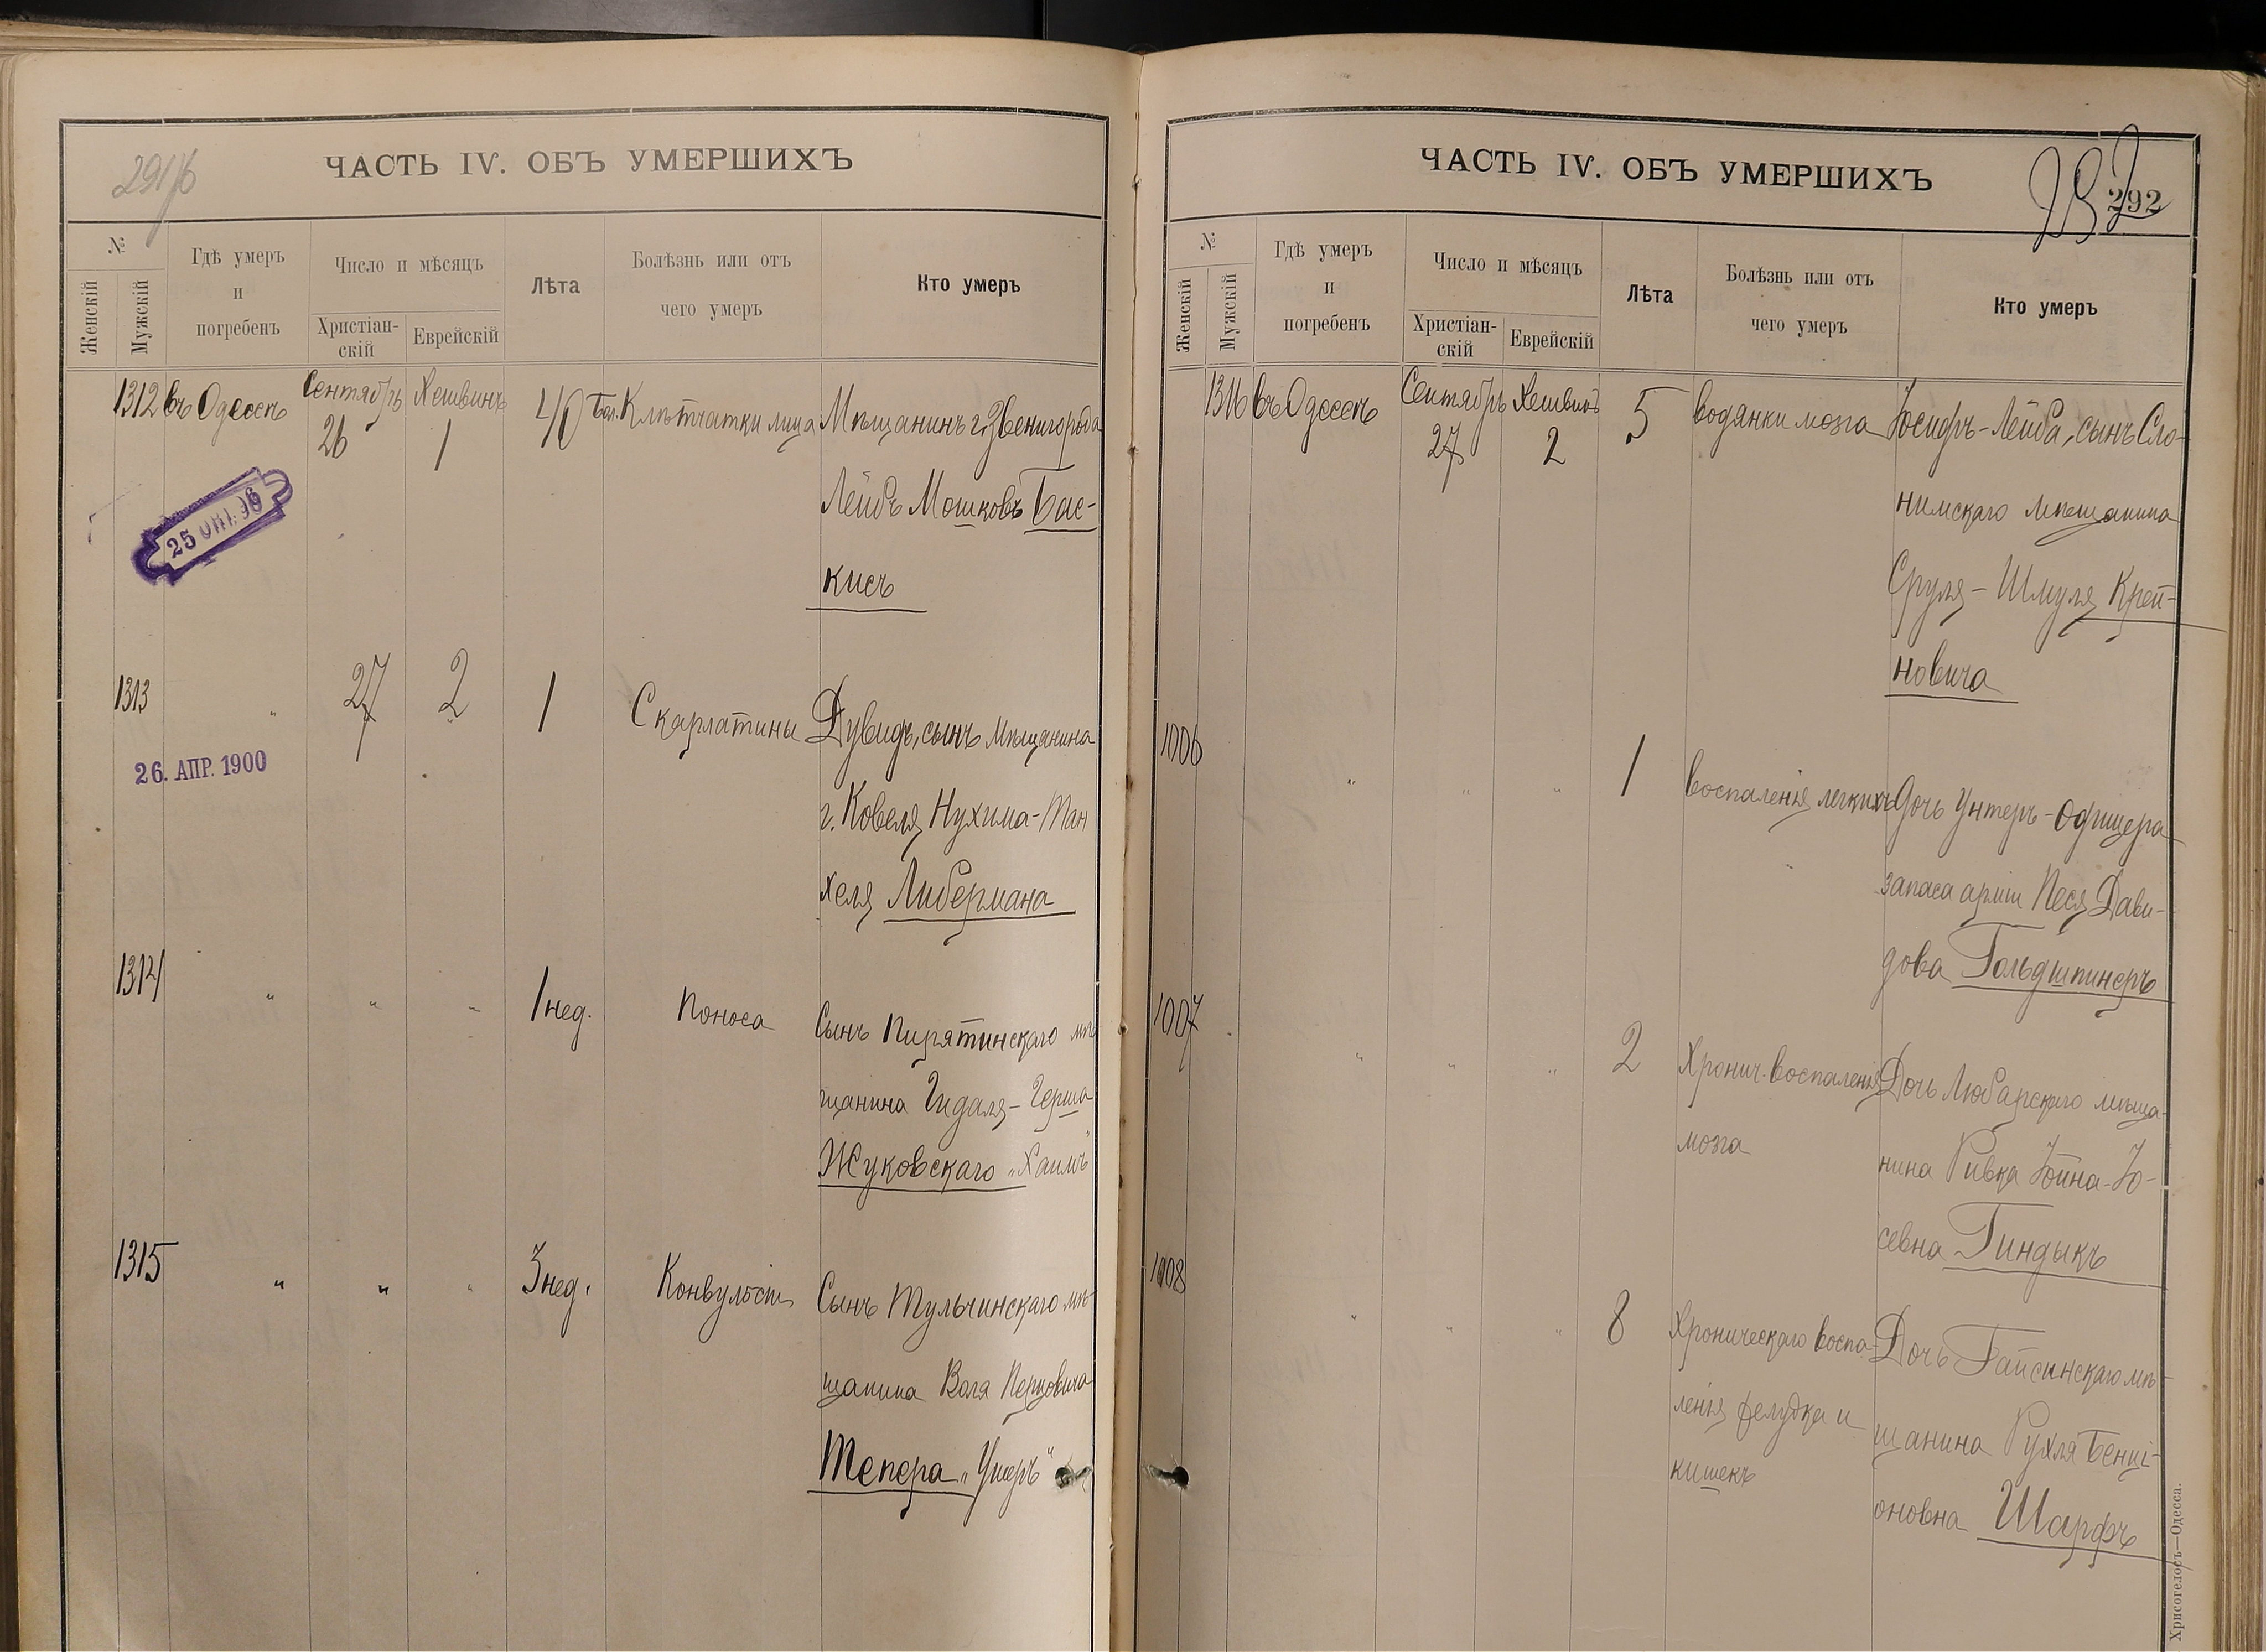 291/б
ЧАСТЬ IV. ОБЪ УМЕРШИХЪ
№
Женскій
Мужскій
Гдѣ умеръ
и
погребенъ
Число и мѣсяцъ
Христіан-
скій
Еврейскій
Лѣта
Болѣзнь или отъ
чего умеръ
Кто умеръ
1312 въ Одессѣ Сентябрь Хешвинъ 40 Клѣтчатки лица Мѣщанинъ г. Звенигорода
26 1
Лейбъ Мошковъ Бас-
кисъ
25 ОКТ. 96
1313 " 27 2 1 Скарлатины Дувидъ, сынъ мѣщанина
г. Ковеля Нухима-Ман
хеля Либермана
26. АПР. 1900
1314 " " " 1 нед. Поноса Сынъ Пирятинскаго мѣ
щанина Гидаля-Герша
Жуковскаго „Хаимъ"
1315 " " " 3 нед. Конвульсіи Сынъ Тульчинскаго мѣ-
щанина Воля Перцовича
Тепера „Ушеръ"
ЧАСТЬ IV. ОБЪ УМЕРШИХЪ
292
292
№
Женскій
Мужскій
Гдѣ умеръ
и
погребенъ
Число и мѣсяцъ
Христіан-
скій
Еврейскій
Лѣта
Болѣзнь или отъ
чего умеръ
Кто умеръ
1316 въ Одессѣ Сентябрь Хешвинъ 5 водянки мозга Іосифъ-Лейба, сынъ Сло-
27 2
нимскаго мѣщанина
Сруля-Шмуля Крей-
новича
1006 " " " 1 воспаленія легкихъ Дочь Унтеръ-Офицера
запаса арміи Песя Дави-
дова Гольдшпинеръ
1007 " " " 2 Хронич. воспаленія Дочь Любарскаго мѣща-
мозга нина Ривка Іойна-Іо-
севна Гиндыкъ
1008 " " " 8 Хроническаго воспа- Дочь Гайсинскаго мѣ-
ленія желудка и щанина Рухля Бенці-
кишекъ оновна Шарфъ
Хрисогелосъ—Одесса.